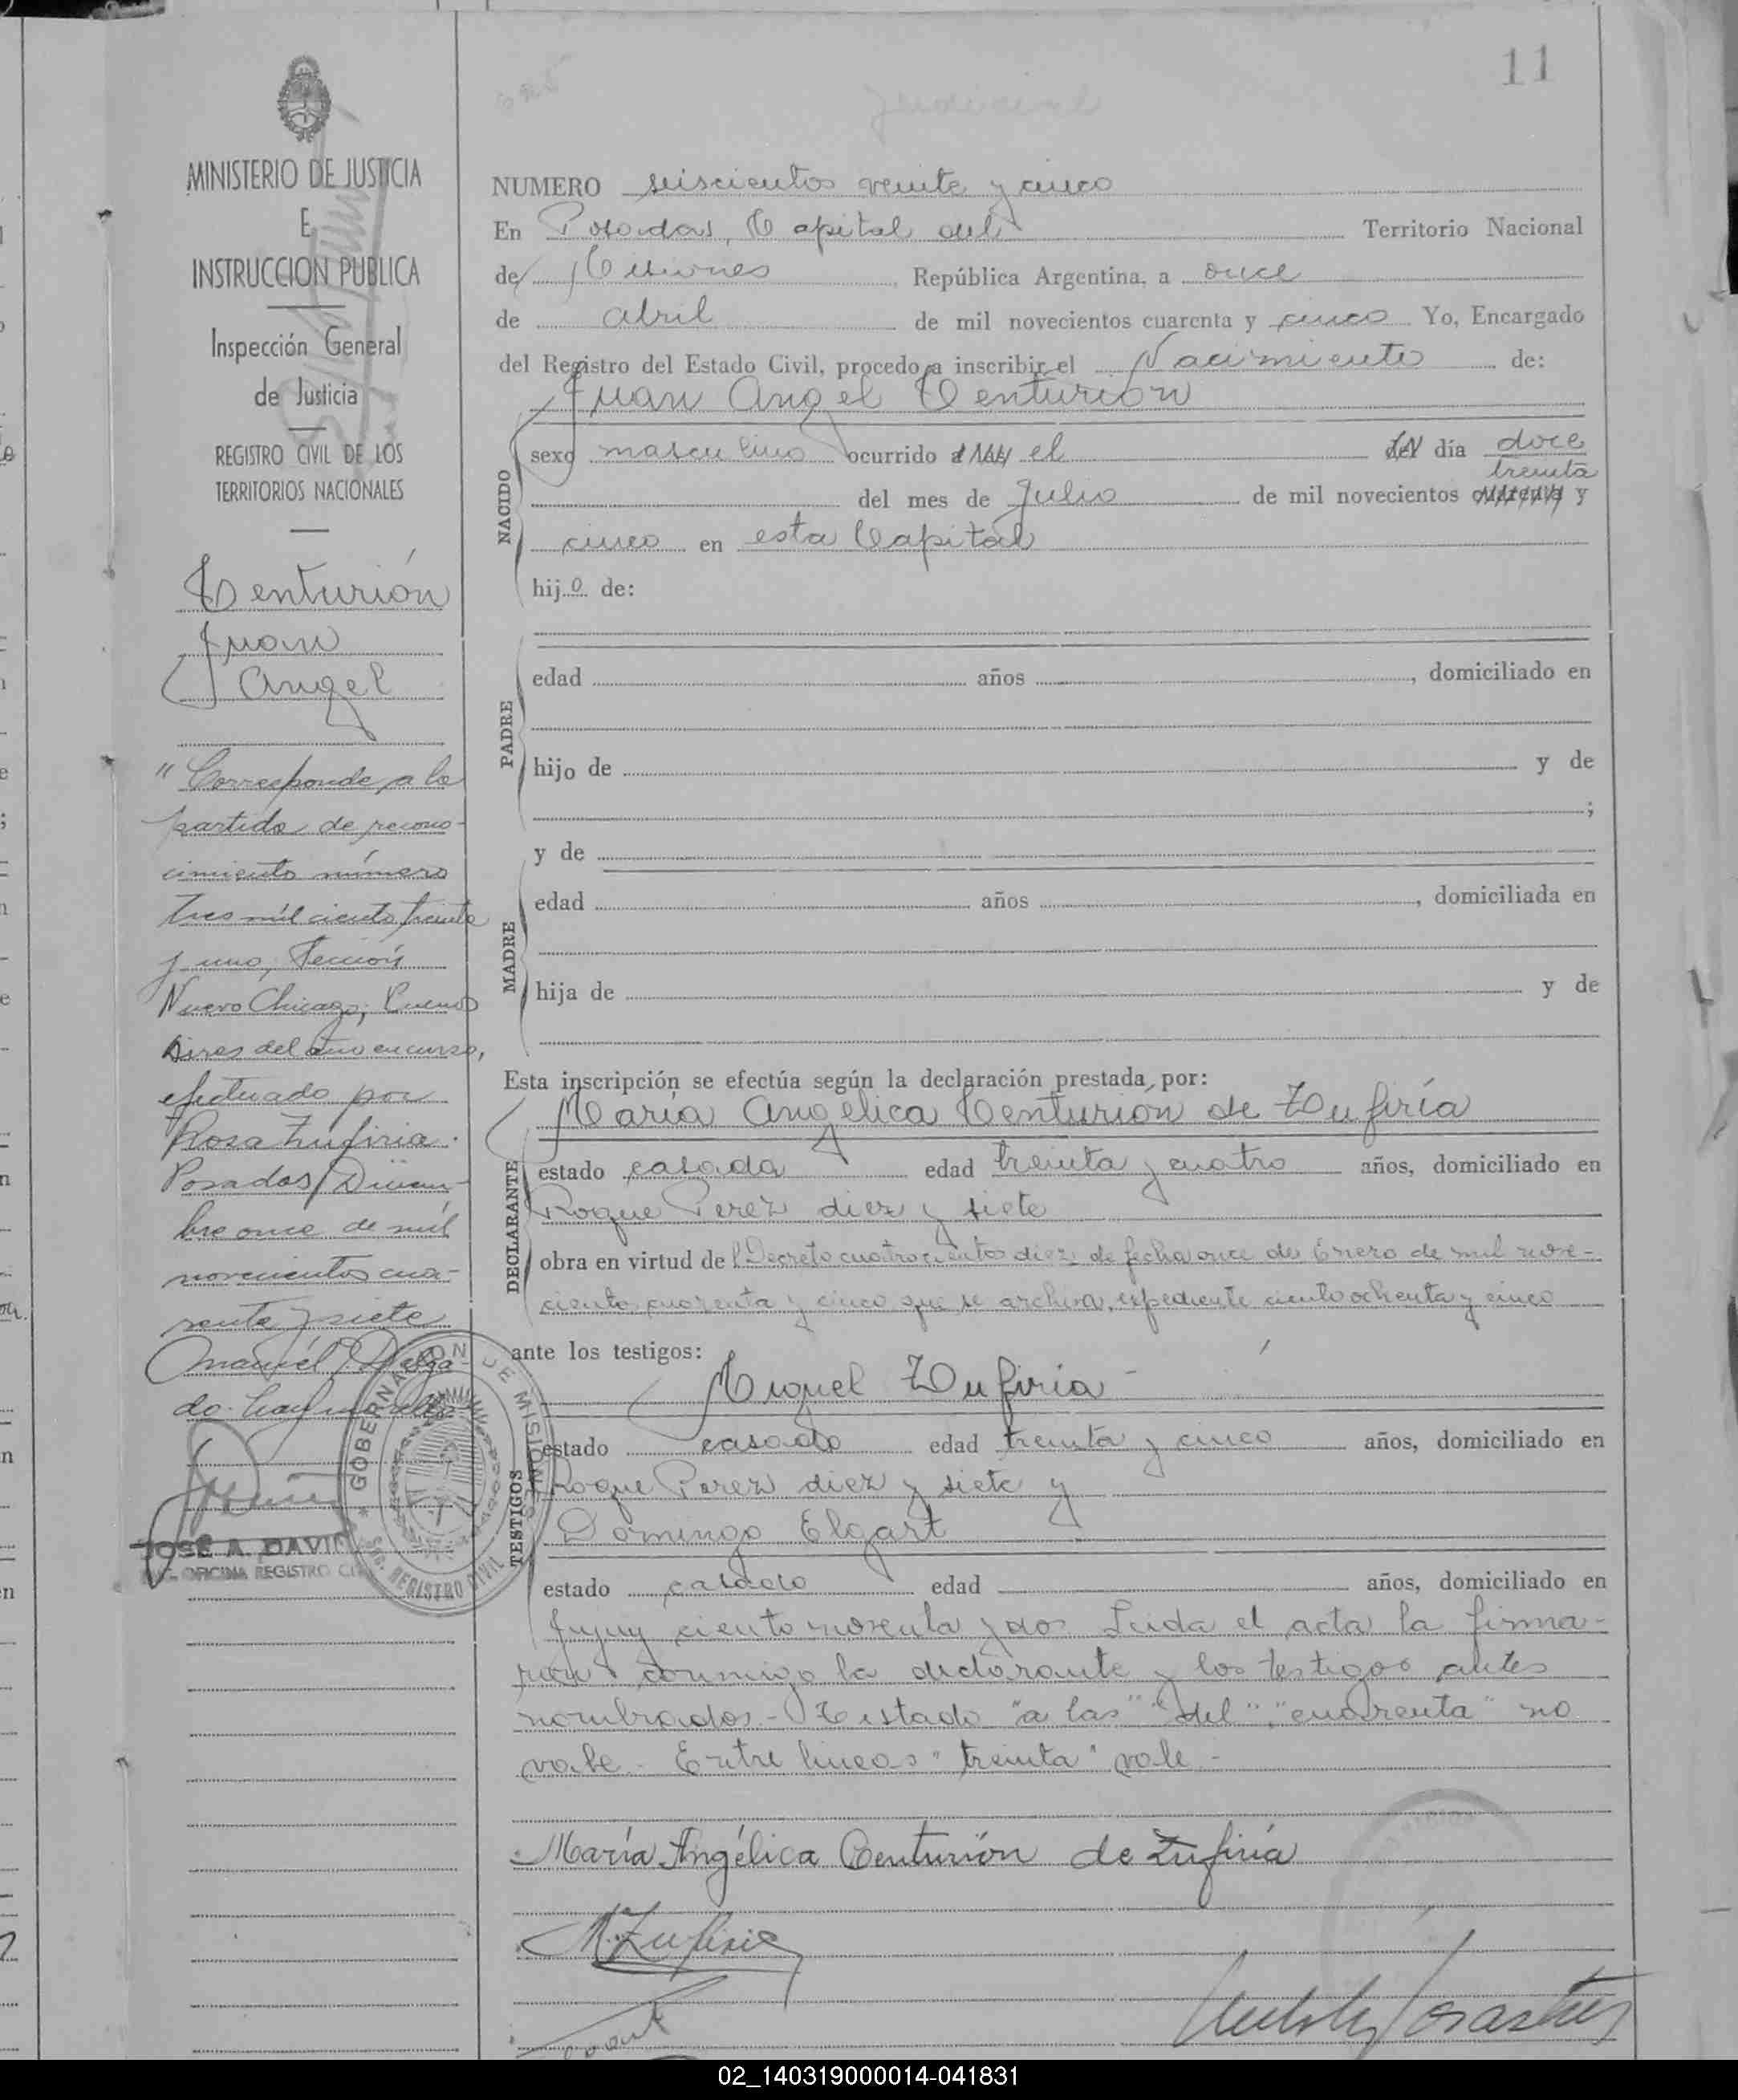 11
MINISTERIO DE JUSTICIA
E
INSTRUCCION PUBLICA
Inspección General
de Justicia
REGISTRO CIVIL DE LOS
TERRITORIOS NACIONALES
Centurión
Juan
Angel
"Corresponde a la
partida de recono-
cimiento número
tres mil ciento treinta
y uno, Sección
Nueva Chicago, Buenos
Aires del año en curso,
efectuado por
Rosa Zufiria.
Posadas, Diciem-
bre once de mil
novecientos cua-
renta y siete
Manuel
JOSÉ A. DAVI
OFICINA REGISTRO
GOBERNACION DE MISIONES
REGISTRO CIVIL
NUMERO seiscientos veinte y cinco
En Posadas, Capital del Territorio Nacional
de Misiones, República Argentina, a once
de abril de mil novecientos cuarenta y cinco Yo, Encargado
del Registro del Estado Civil, procedo a inscribir el Nacimiento de:
Juan Angel Centurión
NACIDO
sexo masculino ocurrido a las el del día doce
treinta
del mes de Julio de mil novecientos cuarenta y
cinco en esta Capital
hijo de:
PADRE
edad años , domiciliado en
hijo de y de
;
y de
MADRE
edad años , domiciliada en
hija de y de
Esta inscripción se efectúa según la declaración prestada por:
María Angélica Centurión de Zufiría
DECLARANTE
estado casada edad treinta y cuatro años, domiciliado en
Roque Perez diez y siete
obra en virtud de Decreto cuatrocientos diez de fecha once de Enero de mil nove-
cientos cuarenta y cinco que se archiva, expediente ciento ochenta y cinco
ante los testigos:
Miguel Zufiria
TESTIGOS
estado casado edad treinta y cinco años, domiciliado en
Roque Perez diez y siete y
Domingo Elgart
estado casado edad años, domiciliado en
Jujuy ciento noventa y dos Leida el acta la firma-
ron conmigo la declarante y los testigos antes
nombrados.- Testado "a las" "del", "cuarenta" no
vale. Entre lineas "treinta" vale.-
María Angélica Centurión de Zufiría
M. Zufiria
02_140319000014-041831